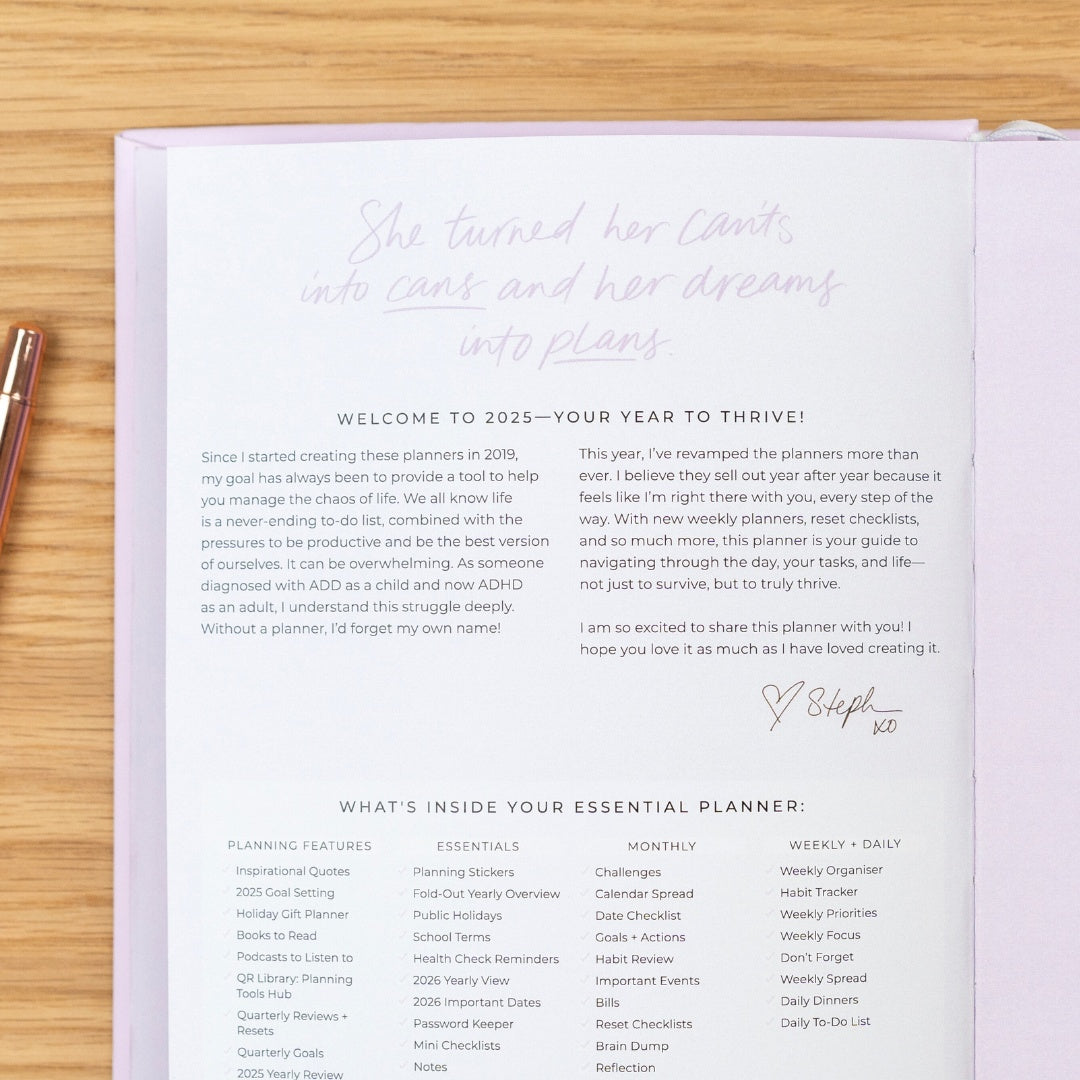 She turned her can'ts
into cans and her dreams
into plans.
WELCOME TO 2025—YOUR YEAR TO THRIVE!
Since I started creating these planners in 2019,
my goal has always been to provide a tool to help
you manage the chaos of life. We all know life
is a never-ending to-do list, combined with the
pressures to be productive and be the best version
of ourselves. It can be overwhelming. As someone
diagnosed with ADD as a child and now ADHD
as an adult, I understand this struggle deeply.
Without a planner, I'd forget my own name!
This year, I've revamped the planners more than
ever. I believe they sell out year after year because it
feels like I'm right there with you, every step of the
way. With new weekly planners, reset checklists,
and so much more, this planner is your guide to
navigating through the day, your tasks, and life—
not just to survive, but to truly thrive.
I am so excited to share this planner with you! I
hope you love it as much as I have loved creating it.
Steph
XO
WHAT'S INSIDE YOUR ESSENTIAL PLANNER:
PLANNING FEATURES
Inspirational Quotes
2025 Goal Setting
Holiday Gift Planner
Books to Read
Podcasts to Listen to
QR Library: Planning
Tools Hub
Quarterly Reviews +
Resets
Quarterly Goals
2025 Yearly Review
ESSENTIALS
Planning Stickers
Fold-Out Yearly Overview
Public Holidays
School Terms
Health Check Reminders
2026 Yearly View
2026 Important Dates
Password Keeper
Mini Checklists
Notes
MONTHLY
Challenges
Calendar Spread
Date Checklist
Goals + Actions
Habit Review
Important Events
Bills
Reset Checklists
Brain Dump
Reflection
WEEKLY + DAILY
Weekly Organiser
Habit Tracker
Weekly Priorities
Weekly Focus
Don't Forget
Weekly Spread
Daily Dinners
Daily To-Do List